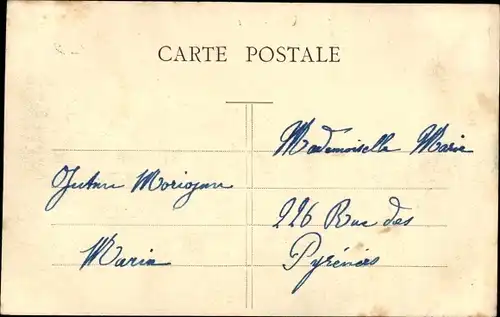 CARTE POSTALE
Mademoiselle Marie
226 Rue des
Pyrénées
Maria